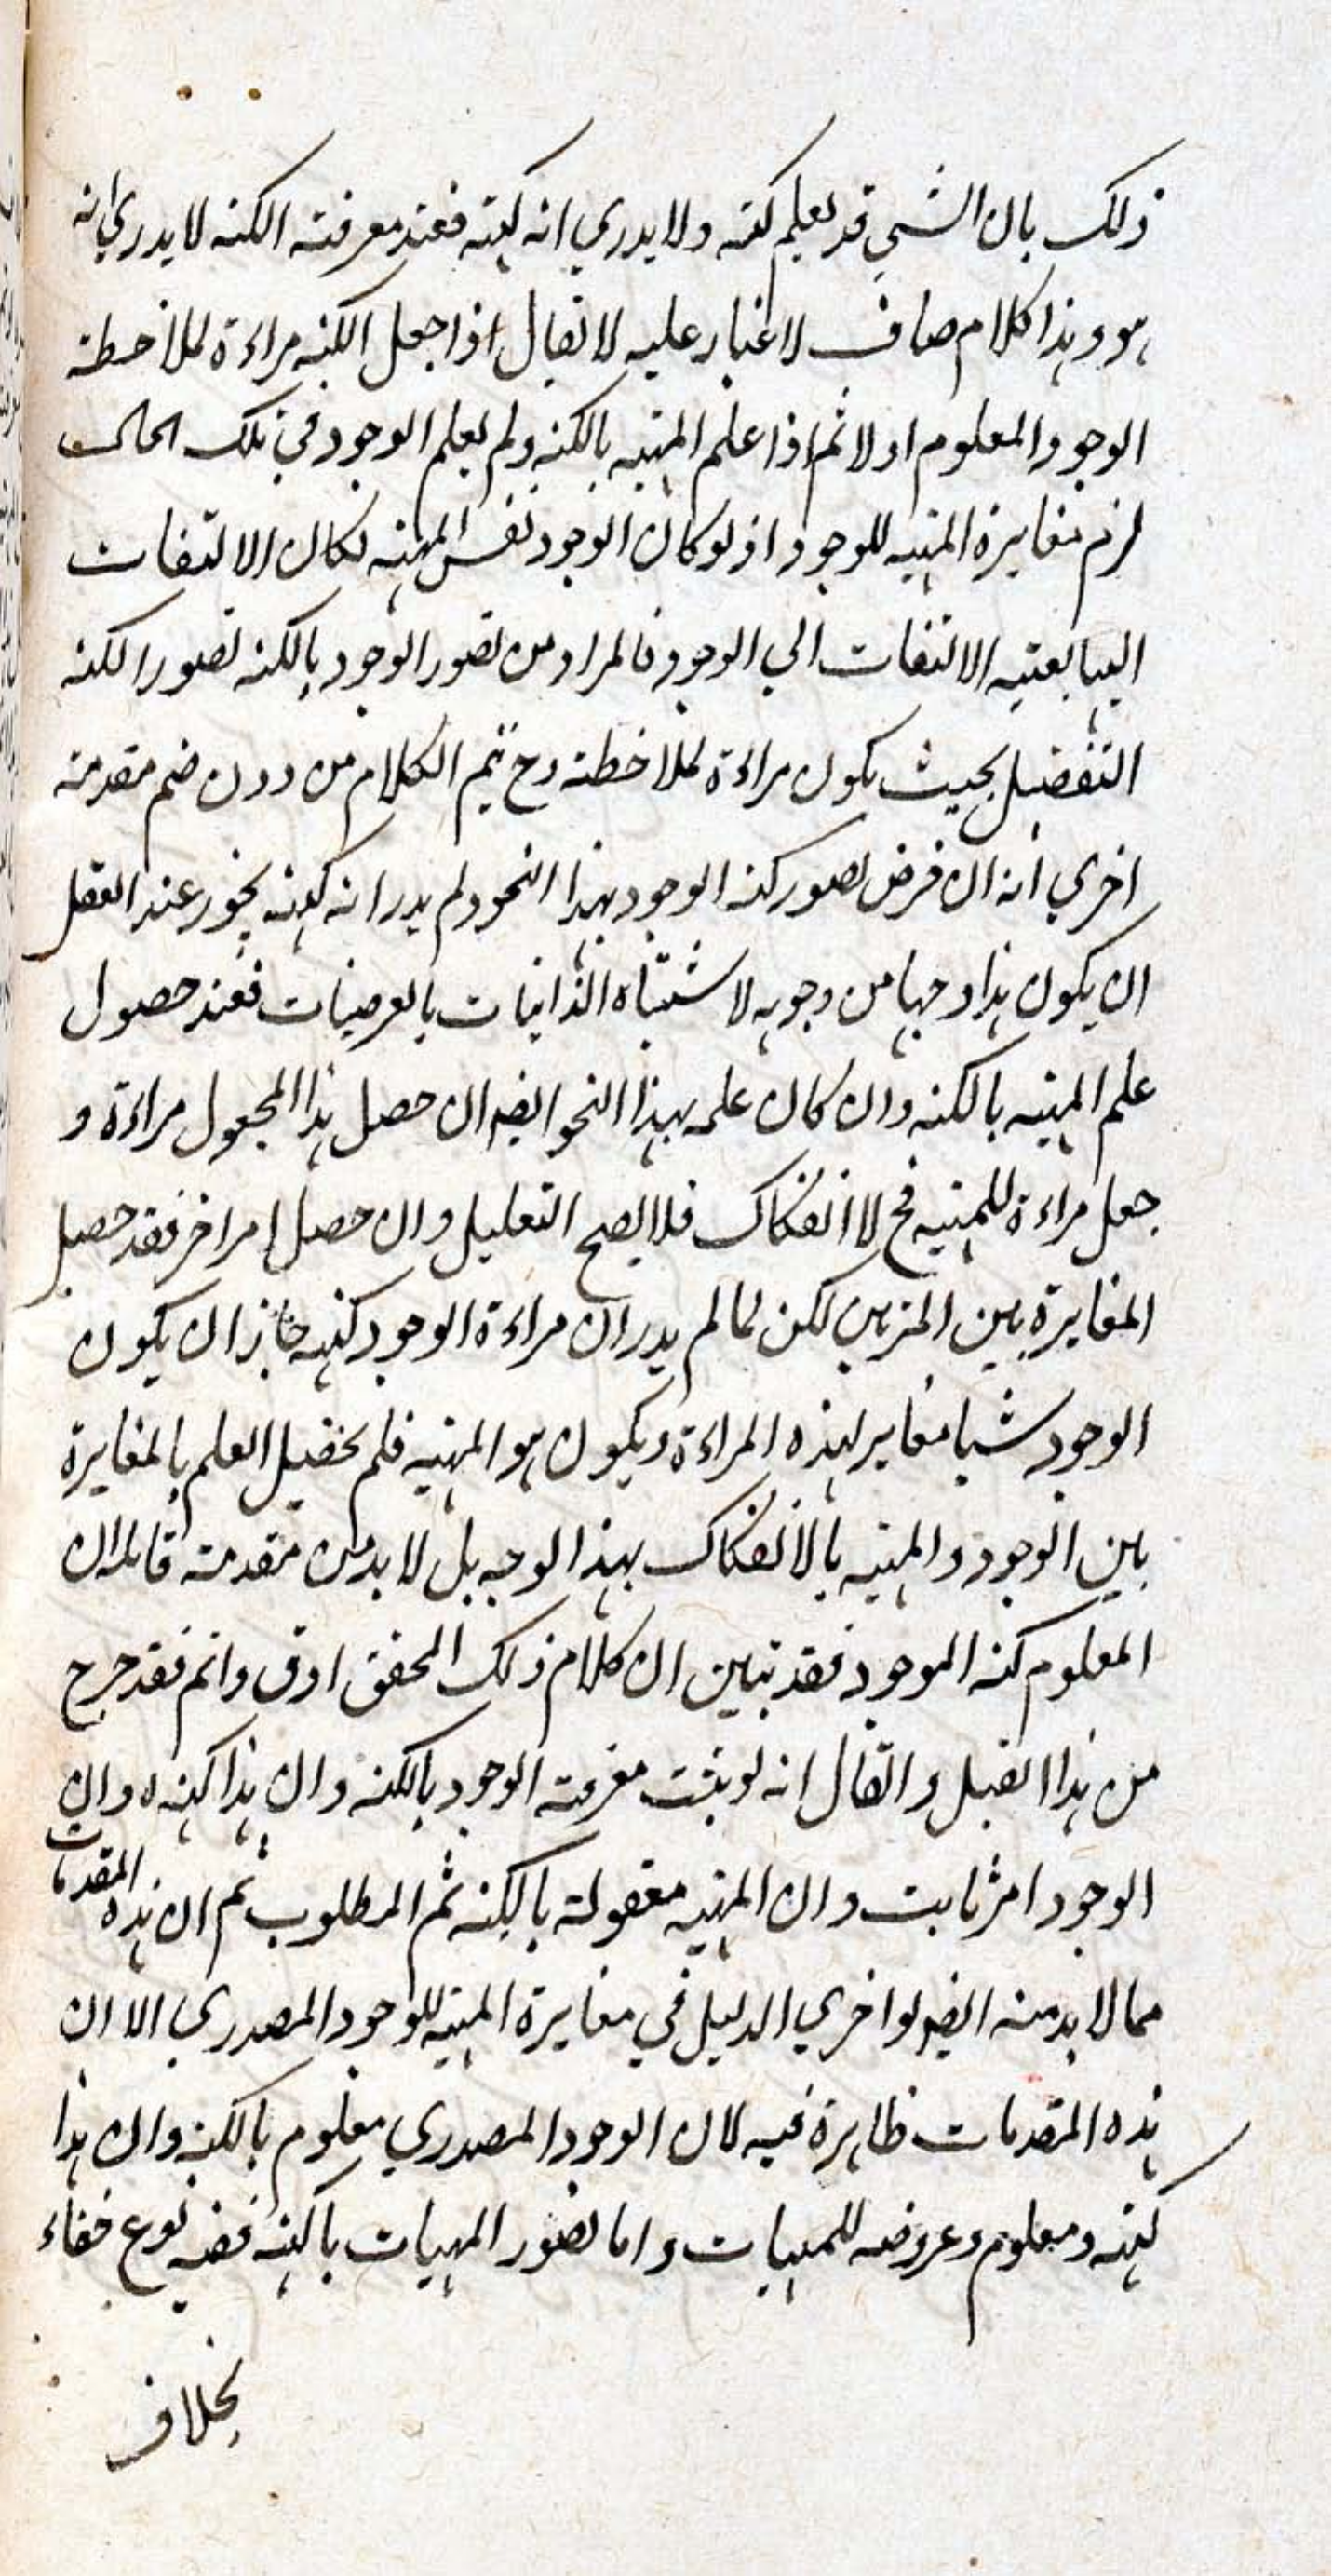 ذلك بان الشي قد يعلم كنه ولا يدري انه كنهه فعند معرفته الكنه لا يدري انه
هو وهذا كلام صاف لا غبار عليه لا يقال اذا جعل الكنه مراءة لملاحظة
الوجود المعلوم اولا ثم اذا علم المهيه بالكنه ولم يعلم الوجود في تلك الحالت
لزم مغايرة المهيه للوجود اذ لو كان الوجود نفس المهيه لكان الالتفات
اليها بعينه الالتفات الي الوجود فالمراد من تصور الوجود بالكنه تصور الكنه
التفضيل بحيث يكون مراءة لملاحظته وح يتم الكلام من دون ضم مقدمة
اخري انه ان فرض تصور كنه الوجود بهذا النحو ولم يدر انه كنهه يجوز عند العقل
ان يكون هذا وجها من وجوهه لاشتباه الذاتيات بالعرضيات فعند حصول
علم المهيه بالكنه وان كان علمه بهذا النحو ايضا ان حصل هذا المجعول مراءة و
جعل مراءة للمهيه فح لا انفكاك فلا يصح التعليل وان حصل امر اخر فقد حصل
المغايرة بين المرئيين لكن لما لم يدر ان مراءة الوجود كنهه جاز ان يكون
الوجود شيا مغاير لهذه المراءة ويكون هو المهيه فلم يحصل العلم بالمغايرة
بين الوجود والمهيه بالانفكاك بهذا الوجه بل لا بد من مقدمة قائلة ان
المعلوم كنه الموجود فقد تبين ان كلام ذلك المحقق ادق واتم فقد خرج
من هذا القيل والقال انه لو يثبت معرفة الوجود بالكنه وان هذا كنهه وان
الوجود امر ثابت وان المهيه معقولة بالكنه ثم المطلوب ثم ان هذه المقدمات
مما لا بد منه ايضا لو اخري الدليل في مغايرة المهيه للوجود المصدري الا ان
هذه المقدمات ظاهرة فيه لان الوجود المصدري معلوم بالكنه وان هذا
كنهه ومعلوم وعروضه للمهيات واما تصور المهيات بالكنه ففيه نوع خفاء
بخلاف